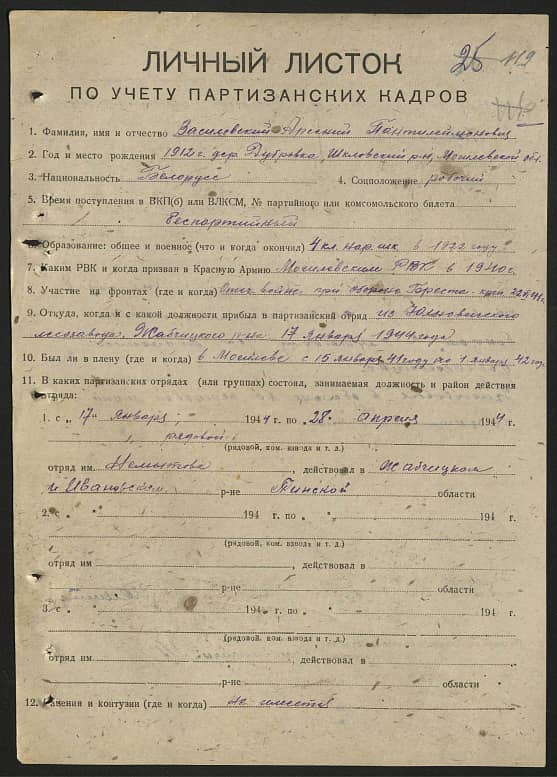 25 119
ЛИЧНЫЙ ЛИСТОК
ПО УЧЕТУ ПАРТИЗАНСКИХ КАДРОВ
1. Фамилия, имя и отчество Василевский Арсений Пантилеймонович
2. Год и место рождения 1912 г. дер Дубровка, Шкловский р-н, Могилевской обл.
3. Национальность Белорусс 4. Соцположение рабочий
5. Время поступления в ВКП(б) или ВЛКСМ, № партийного или комсомольского билета
беспартийный
6. Образование: общее и военное (что и когда окончил) 4 кл. нар. шк в 1922 году.
7. Каким РВК и когда призван в Красную Армию Могилёвским РВК в 1940 г.
8. Участие на фронтах (где и когда) войне при обороне Бреста
9. Откуда, когда и с какой должности прибыл в партизанский отряд из
лесозавода, Жабчицкого р-на 17 января 1944 года
10. Был ли в плену (где и когда) в Могилеве с 15 января 41 году по 1 января 42 год
11. В каких партизанских отрядах (или группах) состоял, занимаемая должность и район действия
отряда:
1. с „17" января 1944 г. по „28" апреля 1944 г.
рядовой
(рядовой, ком. взвода и т. д.)
отряд им. Немытова, действовал в Жабчицком
и Ивановском р-не Пинской области
2. с „ " 194 г. по „ " 194 г.
(рядовой, ком. взвода и т. д.)
отряд им , действовал в
р-не области
3. с „ " 194 г. по „ " 194 г.
(рядовой, ком. взвода и т. д.)
отряд им , действовал в
р-не области
12. Ранения и контузии (где и когда) не имеется